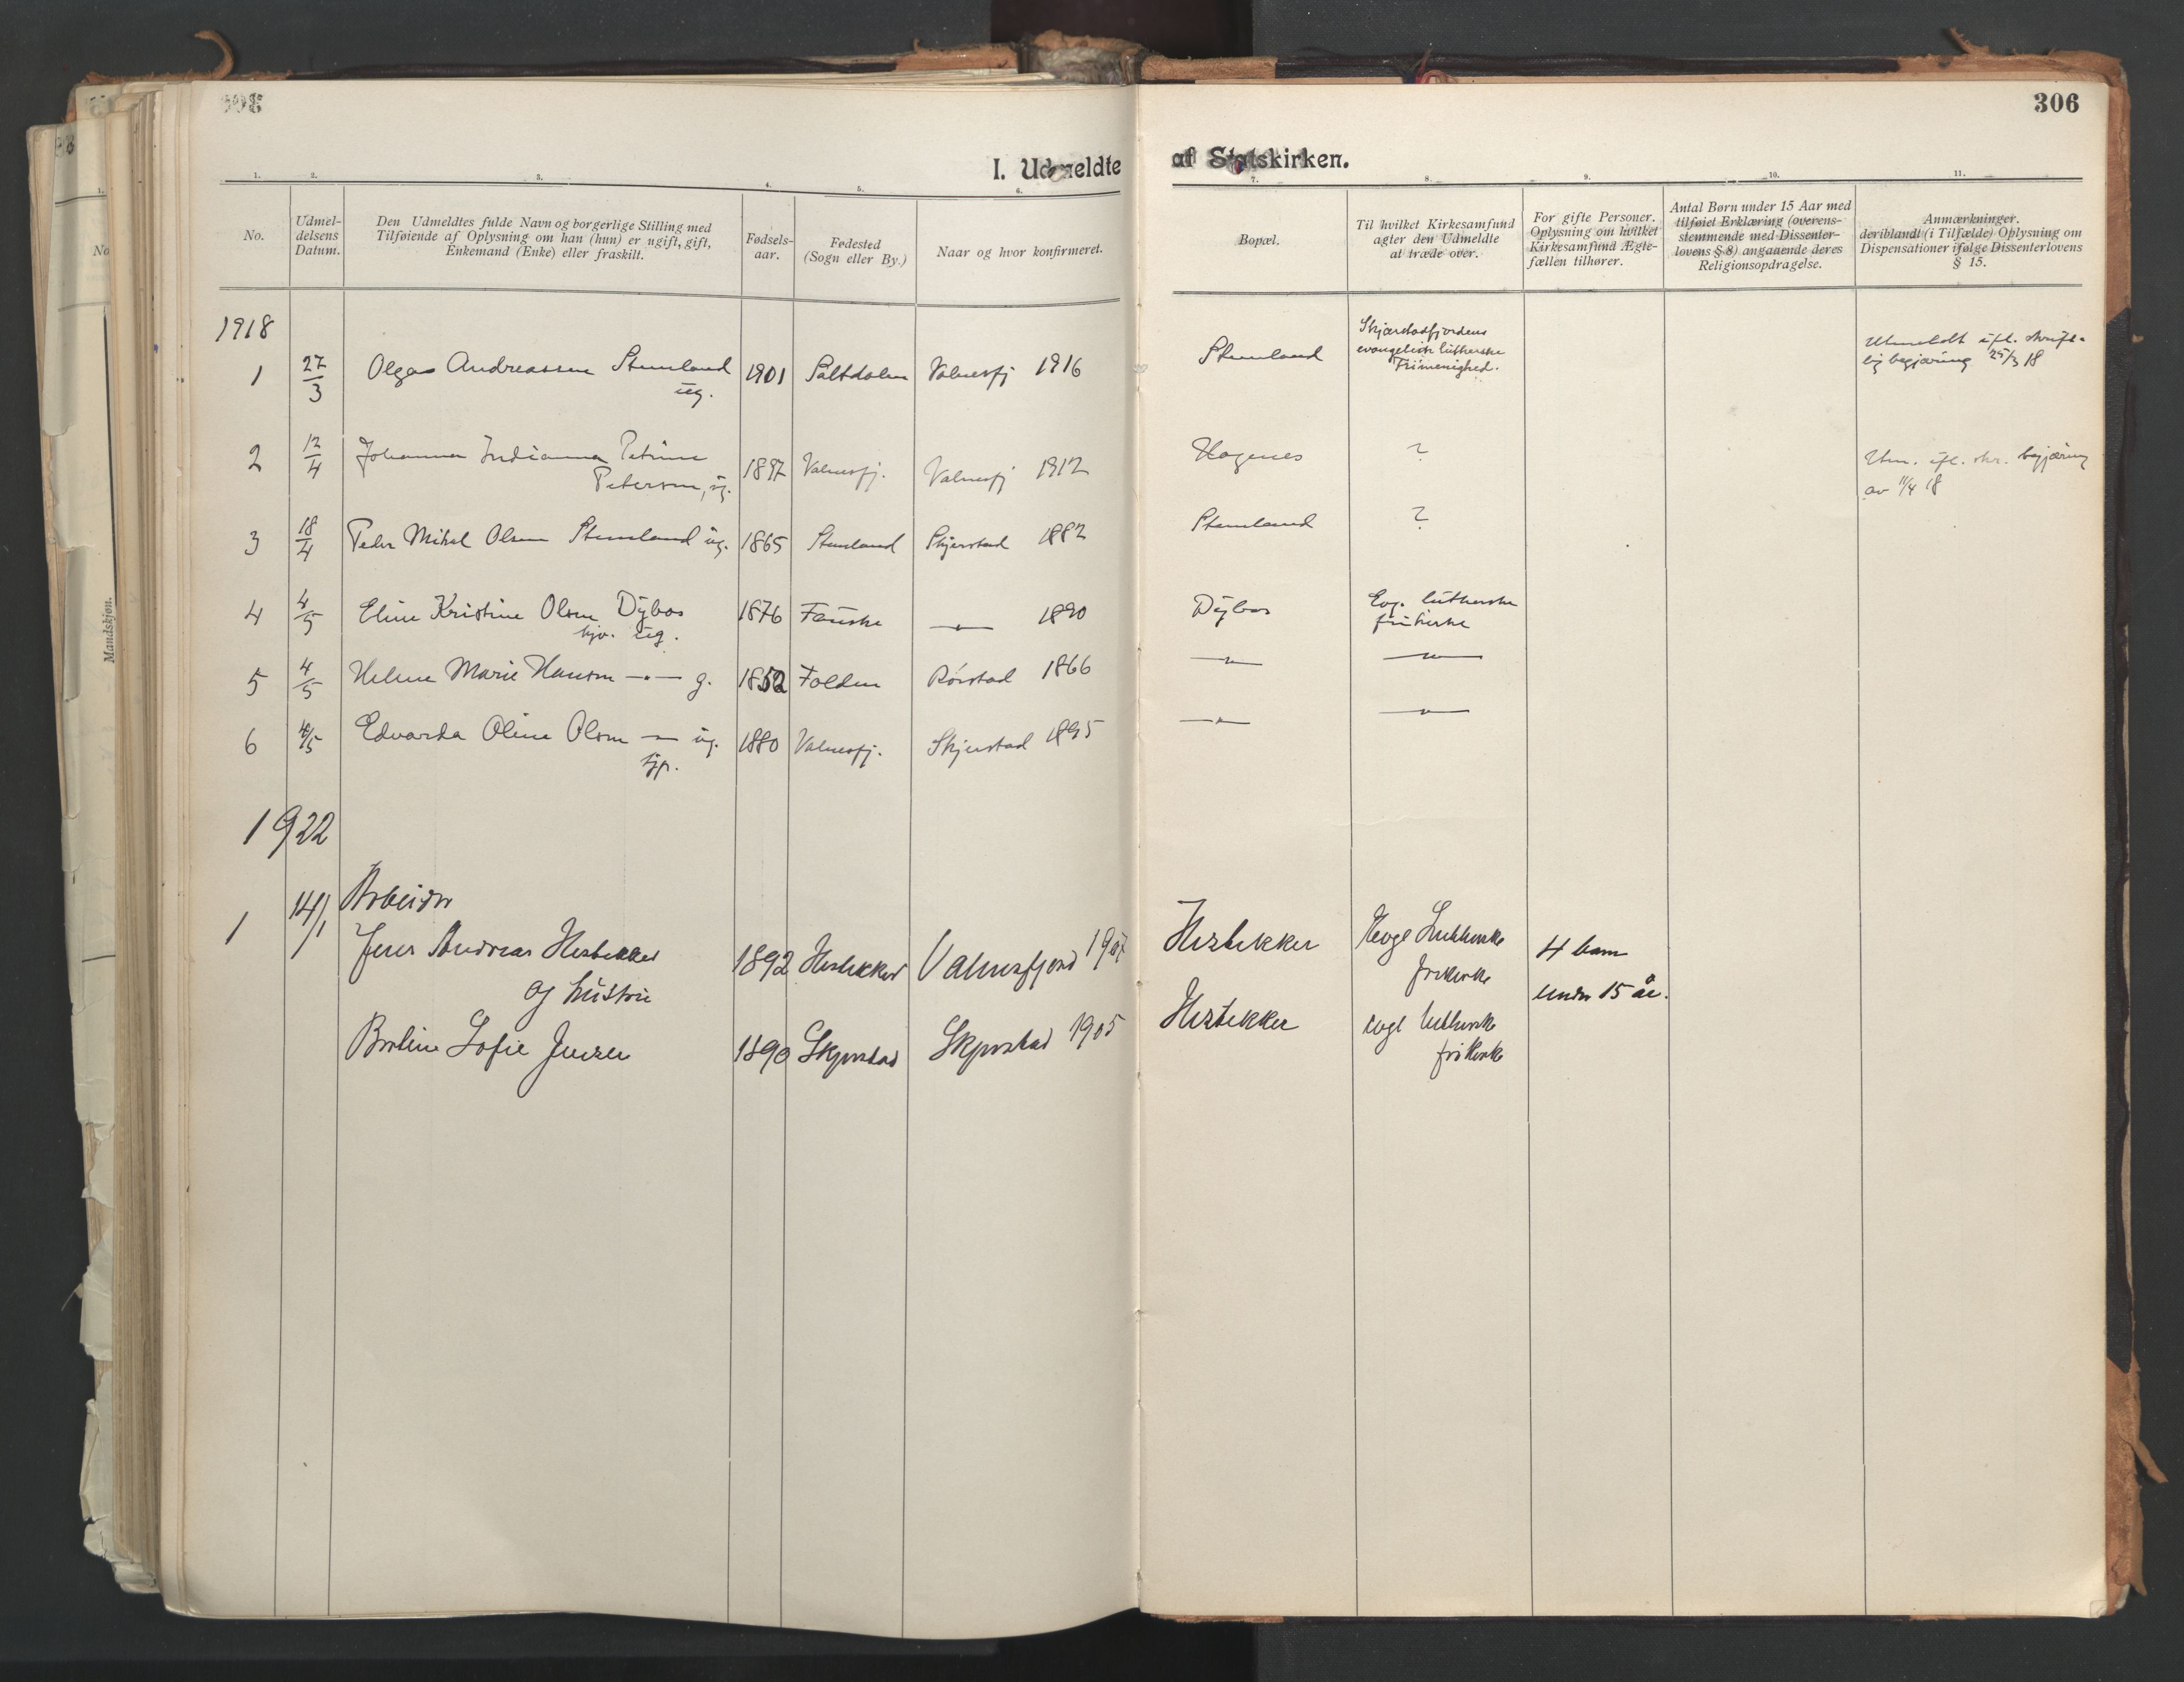 306
I. Udmeldte af Statskirken.
1. 2. 3. 4. 5. 6. 7. 8. 9. 10. 11.
No.
Udmel-
delsens
Datum.
Den Udmeldtes fulde Navn og borgerlige Stilling med
Tilføiende af Oplysning om han (hun) er ugift, gift,
Enkemand (Enke) eller fraskilt.
Fødsels-
aar.
Fødested
(Sogn eller By.)
Naar og hvor konfirmeret.
Bopæl.
Til hvilket Kirkesamfund
agter den Udmeldte
at træde over.
For gifte Personer.
Oplysning om hvilket
Kirkesamfund Ægte-
fællen tilhører.
Antal Børn under 15 Aar med
tilføiet Erklæring (overens-
stemmende med Dissenter-
lovens § 8) angaaende deres
Religionsopdragelse.
Anmærkninger.
deriblandt (i Tilfælde) Oplysning om
Dispensationer ifølge Dissenterlovens
§ 15.
1918
1 27/3 Olga Andreassen Stemland 1901 Saltdalen Valnesfj 1916
ug.
Stemland
Skjærstadfjordens
evangelisk lutherske
Frimenighed.
Utmeldt ifl. skrift-
lig begjæring 25/3 18
2 12/4 Johanna Indianna Petrine
Petersen, ug. 1897 Valnesfj. Valnesfj 1912
Hagenes ?
Utm. ifl. skr. begjæring
av 11/4 18
3 18/4 Peder Mikal Olsen Stemland ug. 1865 Stemland Skjerstad 1882 Stemland ?
4 4/5 Eline Kristine Olsen Dybos 1876 Fauske —"— 1890 Dybos
ug.
Evg. lutherske
frikirke
5 4/5 Helene Marie Hansen —"— g. 1852 Folden Rørstad 1866 —"— —"—
6 4/5 Edvarda Oline Olsen —"— ug. 1880 Valnesfj. Skjerstad 1895 —"— —"—
1922
1 14/1 Arbeider
Jens Andreas Hestekker 1892 Hestekker Valnesfjord 1907 Hestekker
og hustru
Evgl Lutherske
frikirke
4 barn
under 15 år.
Sofie Jensen 1890 Skjerstad Skjerstad 1905 Hestekker
evgl lutherske
frikirke
Mandskjøn.
No